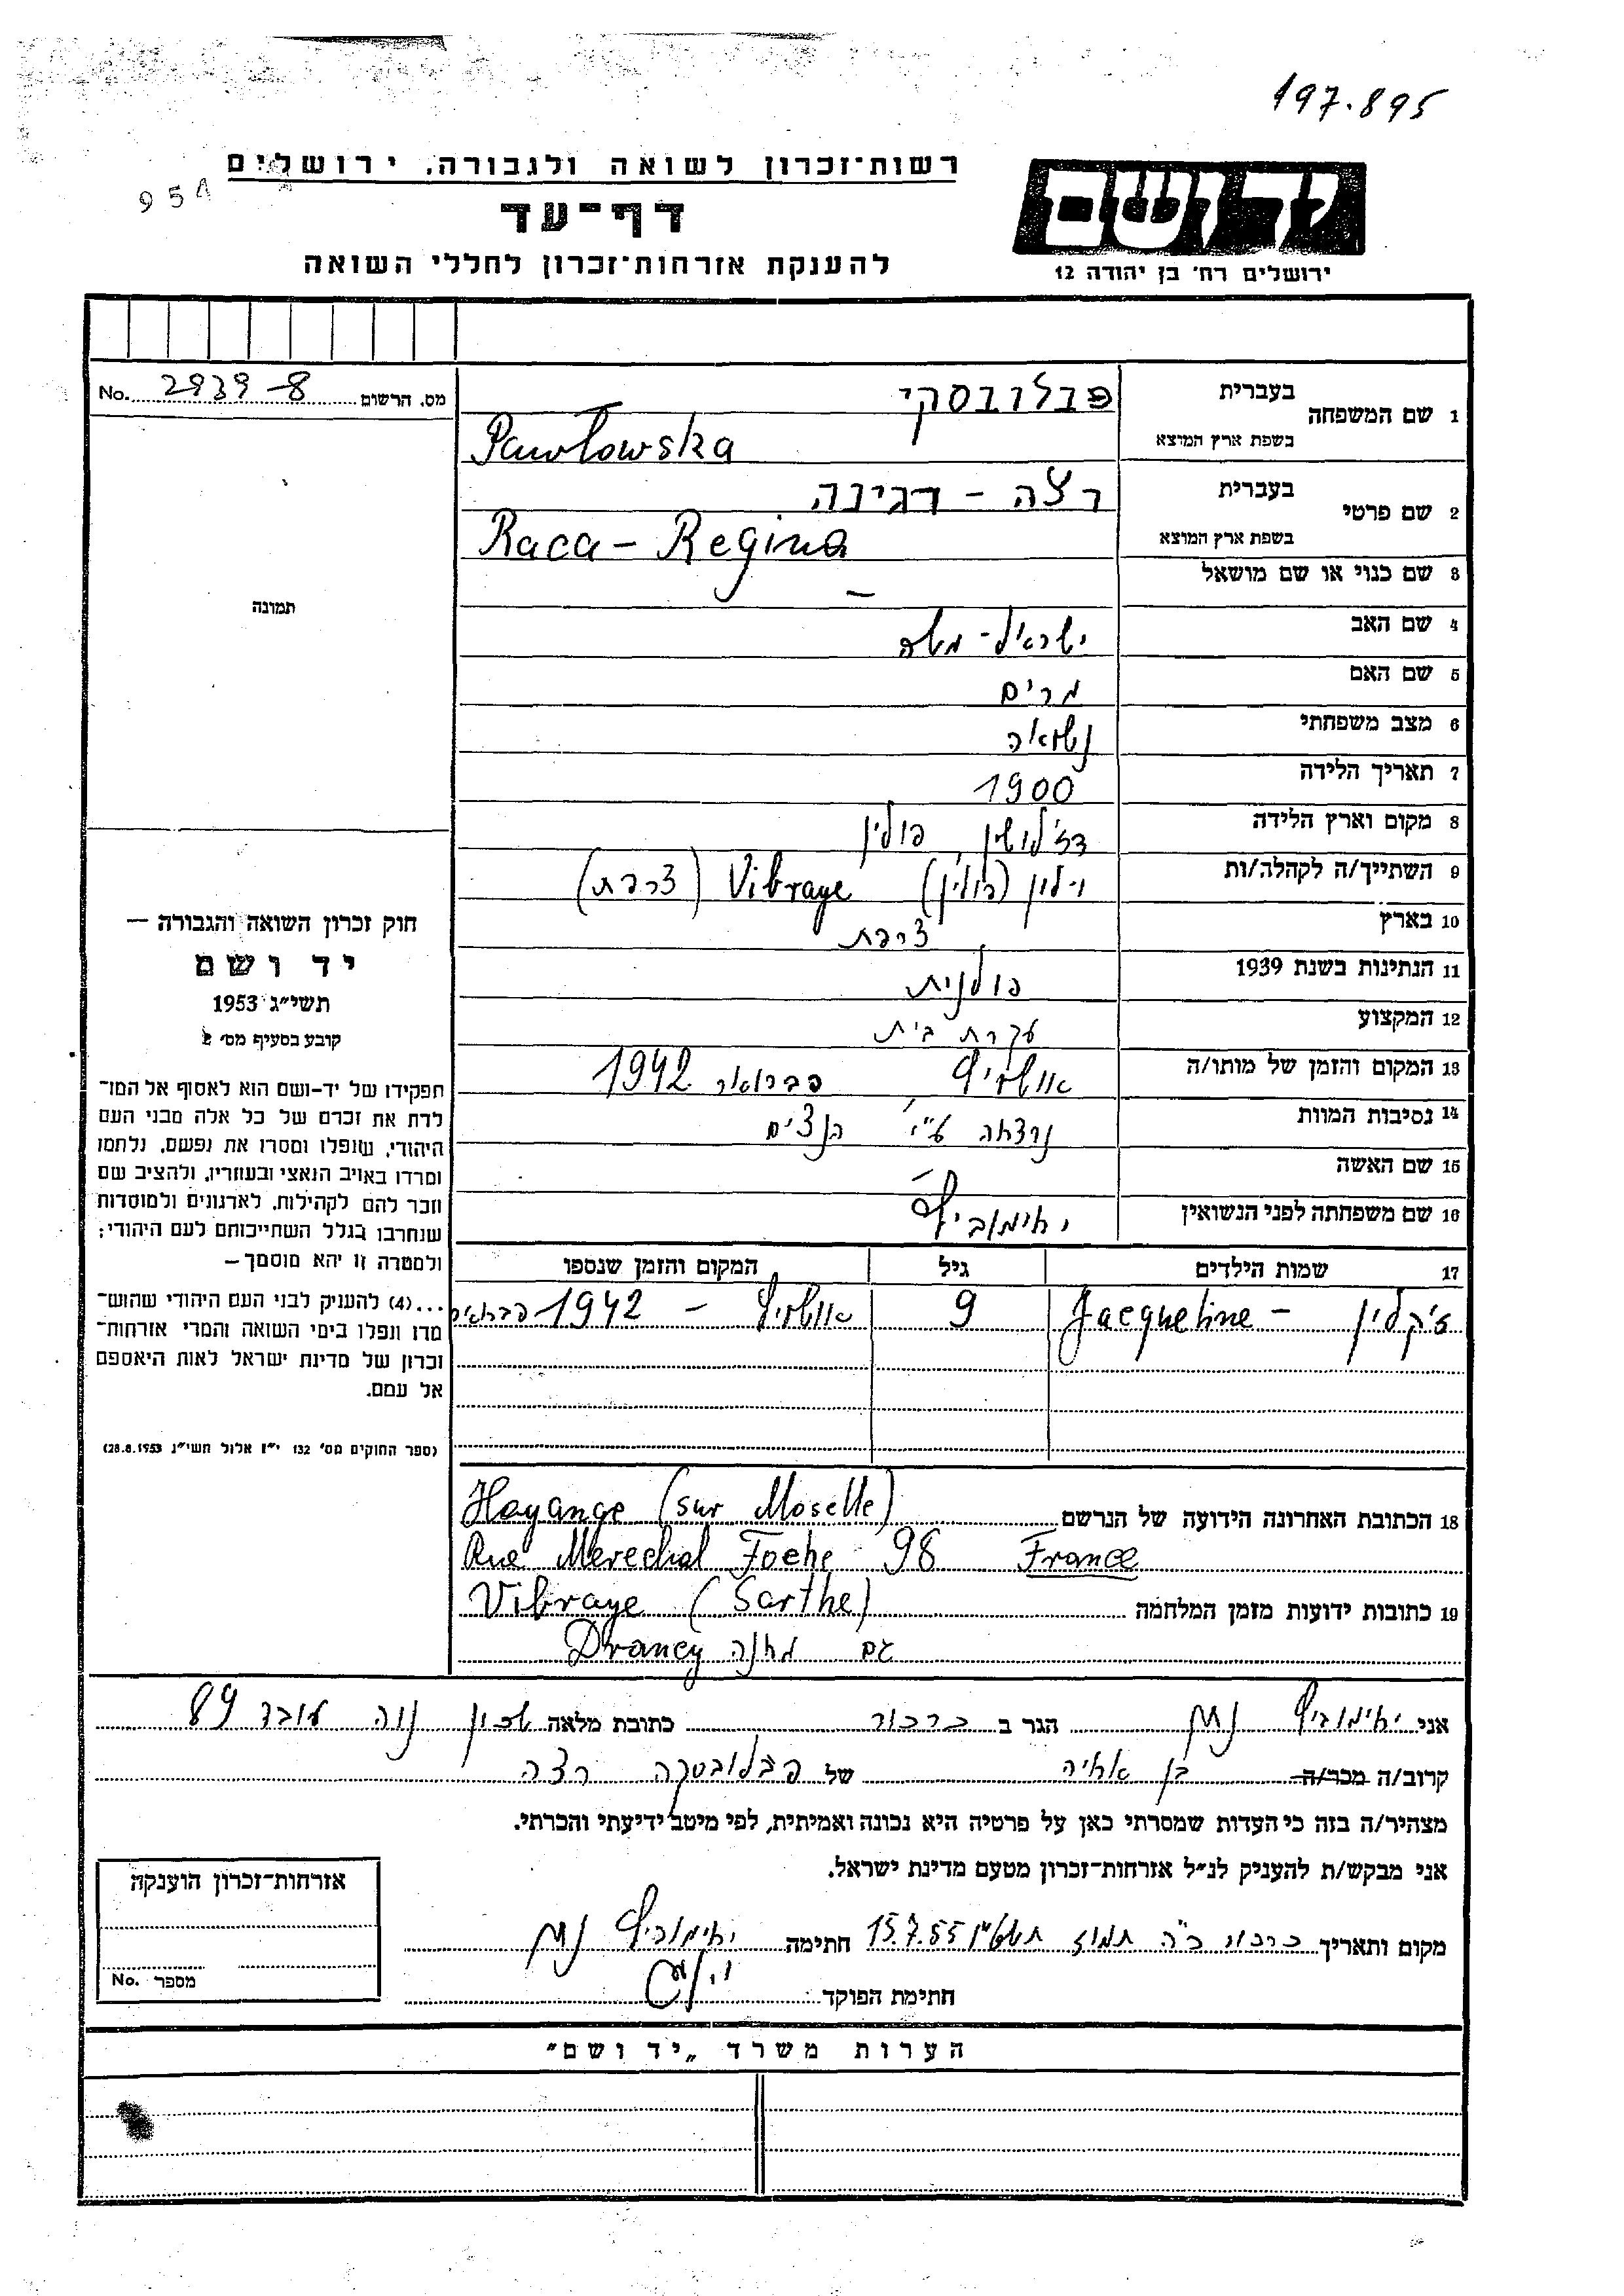 197.895
רשות־זכרון לשואה ולגבורה, ירושלים
954
דף־עד
להענקת אזרחות־זכרון לחללי השואה
ידושם
ירושלים רח' בן יהודה 12
מס. הרשום 2939-8 No.
1 שם המשפחה
בעברית פבלובסקי
בשפת ארץ המוצא Pawłowska
2 שם פרטי
בעברית רצה - רגינה
בשפת ארץ המוצא Raca - Regina
3 שם כנוי או שם מושאל —
4 שם האב ישראל - משה
5 שם האם מרים
6 מצב משפחתי נשואה
7 תאריך הלידה 1900
8 מקום וארץ הלידה דז'לושין, פולין
9 השתייך/ה לקהלה/ות וילון (פולין) Vibraye (צרפת)
10 בארץ צרפת
11 הנתינות בשנת 1939 פולנית
12 המקצוע עקרת בית
13 המקום והזמן של מותו/ה אושויץ פברואר 1942
14 נסיבות המוות נרצחה ע"י הנצים
15 שם האשה —
16 שם משפחתה לפני הנשואין יאימוביץ
17 שמות הילדים גיל המקום והזמן שנספו
ז'קלין - Jacqueline 9 אושויץ - 1942 פברואר
18 הכתובת האחרונה הידועה של הנרשם Hayange (sur Moselle)
Rue Merechal Foche 98 France
19 כתובות ידועות מזמן המלחמה Vibraye (Sarthe)
גם מחנה Drancy
תמונה
חוק זכרון השואה והגבורה —
יד ושם
תשי"ג 1953
קובע בסעיף מס' 2
תפקידו של יד-ושם הוא לאסוף אל המו־
לדת את זכרם של כל אלה מבני העם
היהודי, שנפלו ומסרו את נפשם, נלחמו
ומרדו באויב הנאצי ובעוזריו, ולהציב שם
וזכר להם לקהילות, לארגונים ולמוסדות
שנחרבו בגלל השתייכותם לעם היהודי;
ולמטרה זו יהא מוסמך —
...(4) להעניק לבני העם היהודי שהוש־
מדו ונפלו בימי השואה והמרי אזרחות־
זכרון של מדינת ישראל לאות היאספם
אל עמם.
(ספר החוקים מס' 132 י"ז אלול תשי"ג 28.8.1953)
אני יאימוביץ נתן הגר ב כרכור כתובת מלאה שכון נוה עובד 89
קרוב/ה מכר/ה בן אחיה של פבלובסקה רצה
מצהיר/ה בזה כי העדות שמסרתי כאן על פרטיה היא נכונה ואמיתית, לפי מיטב ידיעתי והכרתי.
אני מבקש/ת להעניק לנ"ל אזרחות־זכרון מטעם מדינת ישראל.
מקום ותאריך כרכור כ"ה תמוז תשט"ו 15.7.55 חתימה יאימוביץ נתן
חתימת הפוקד
אזרחות־זכרון הוענקה
מספר No.
הערות משרד „יד ושם"